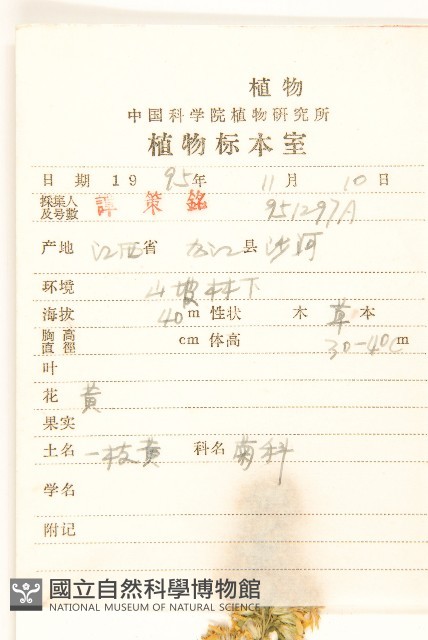 植物
中国科学院植物研究所
植物标本室
日 期 19 95年 11月 10日
採集人及号数 譚策銘 951297A
产地 江西省 九江县 沙河
环境 山坡林下
海拔 40m 性状 木 草本
胸高直徑 cm 体高 30-40cm
叶
花 黄
果实
土名 一枝黄 科名 菊科
学名
附记
國立自然科學博物館
NATIONAL MUSEUM OF NATURAL SCIENCE